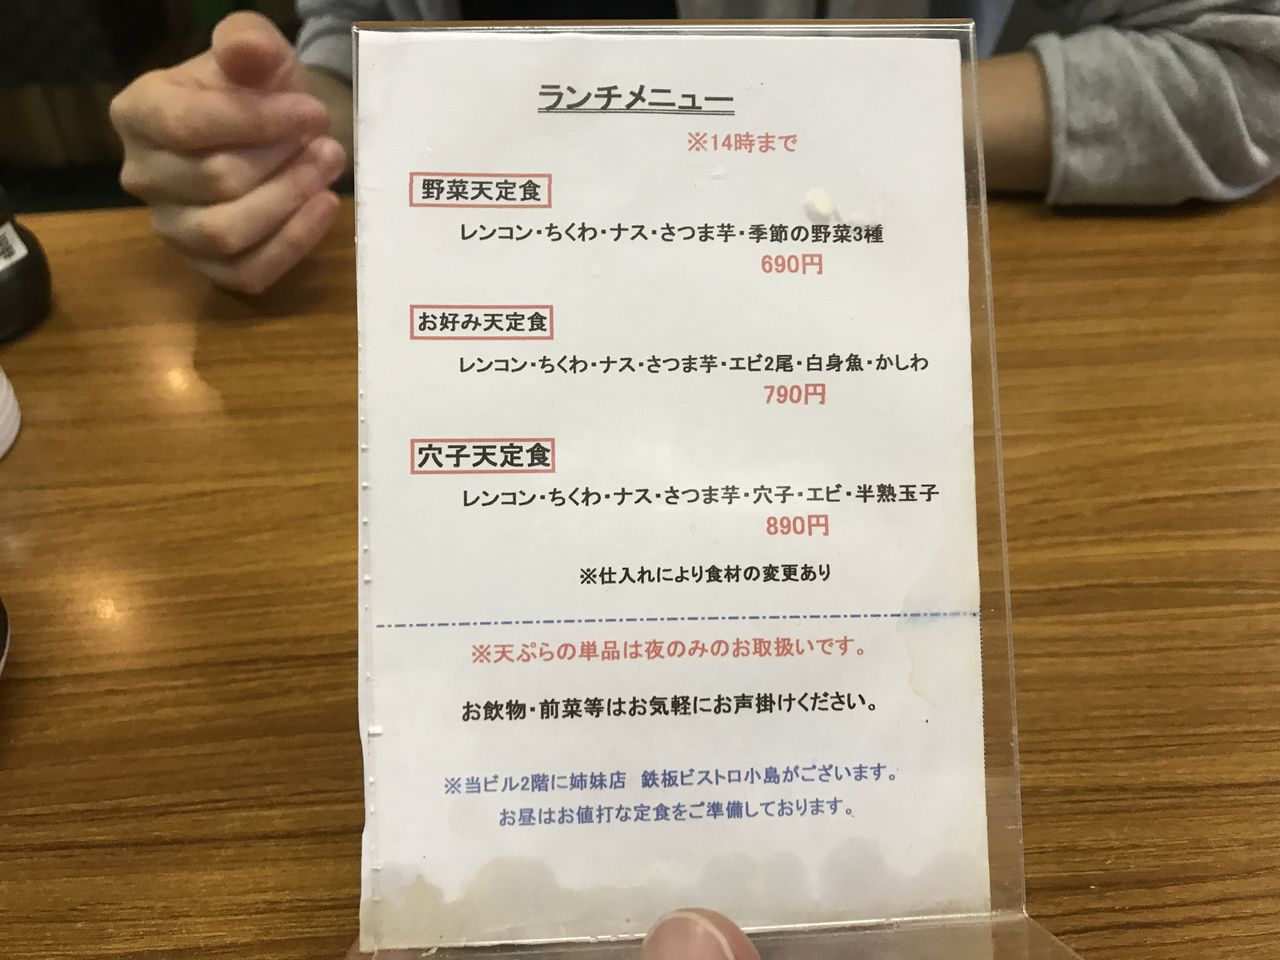 ランチメニュー
※14時まで
野菜天定食
レンコン・ちくわ・ナス・さつま芋・季節の野菜3種
690円
お好み天定食
レンコン・ちくわ・ナス・さつま芋・エビ2尾・白身魚・かしわ
790円
穴子天定食
レンコン・ちくわ・ナス・さつま芋・穴子・エビ・半熟玉子
890円
※仕入れにより食材の変更あり
※天ぷらの単品は夜のみのお取扱いです。
お飲物・前菜等はお気軽にお声掛けください。
※当ビル2階に姉妹店 鉄板ビストロ小島がございます。
お昼はお値打な定食をご準備しております。